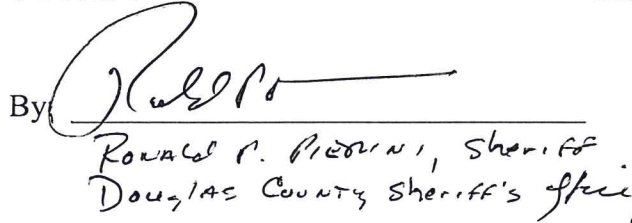 By
RONALD P. PIERINI, Sheriff
DOUGLAS COUNTY Sheriff's Office